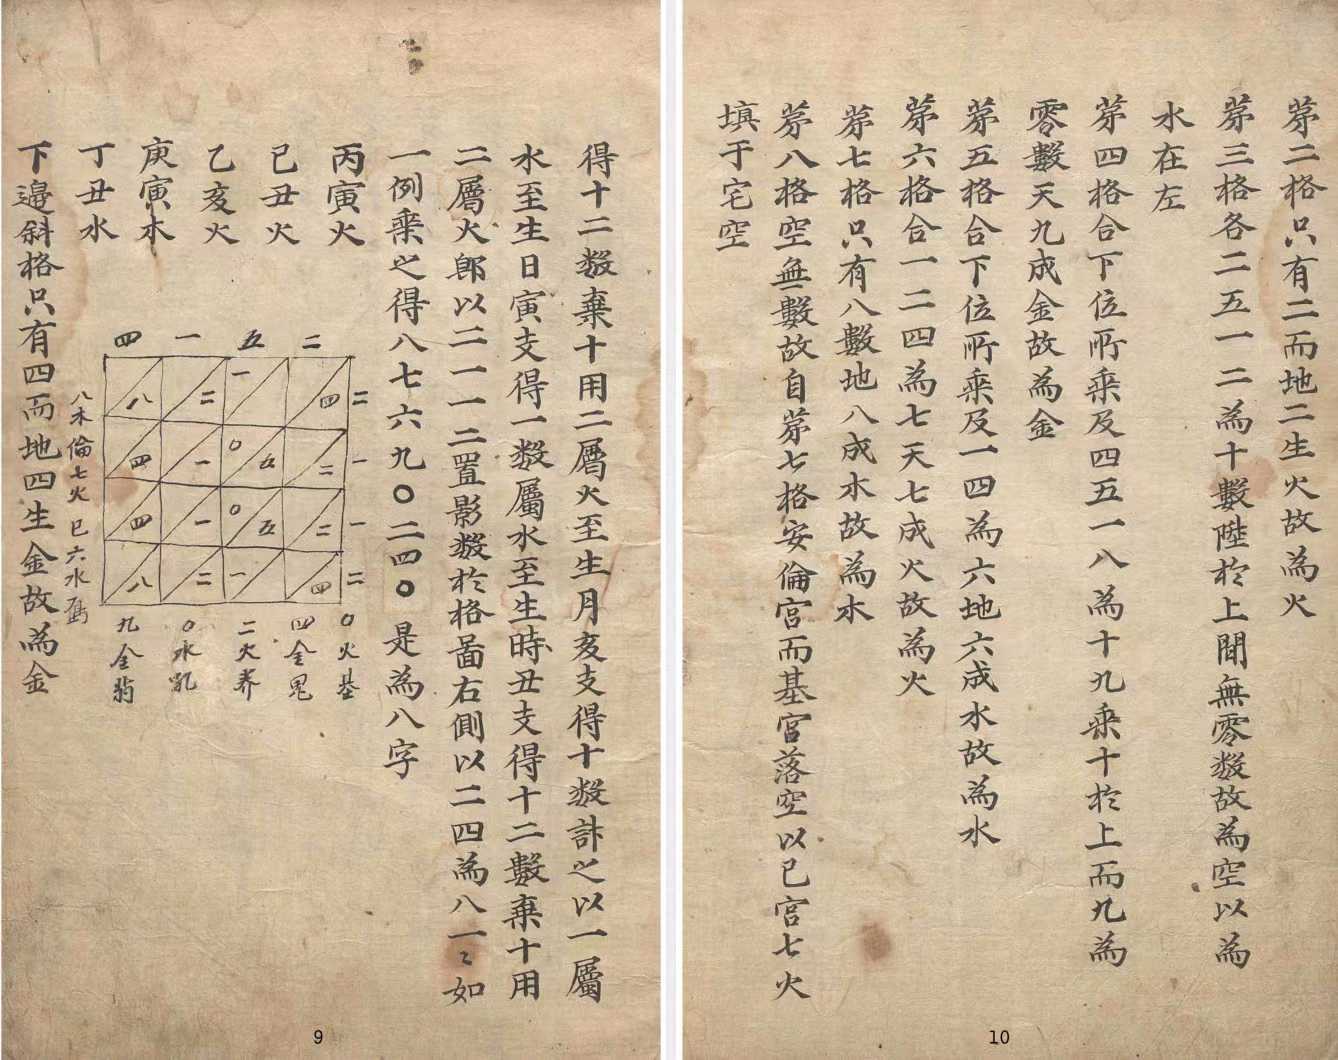 得十二數棄十用二屬火至生月亥支得十數計之以一屬
水至生日寅支得一數屬水至生時丑支得十二數棄十用
二屬火郎以二一一二置影數於格圖右側以二四為八一〻如
一例乘之得八七六九〇二四〇是為八字
丙寅火
己丑火
乙亥火
庚寅木
丁丑水
四 一 五 二
八 二 一 四 二
四 一 〇 五 二 一
四 一 〇 五 二 一
八 二 一 四 二
〇火基
四金冕
二火养
〇水乳
九金
八木倫七火巳六水
下邊斜格只有四而地四生金故為金
9
苐二格只有二而地二生火故為火
苐三格各二五一二為十數陞於上間無零數故為空以為
水在左
苐四格合下位所乘及四五一八為十九乘十於上而九為
零數天九成金故為金
苐五格合下位所乘及一四為六地六成水故為水
苐六格合一二四為七天七成火故為火
苐七格只有八數地八成木故為木
苐八格空無數故自苐七格安倫宮而基宮落空以巳宮七火
填于宅空
10